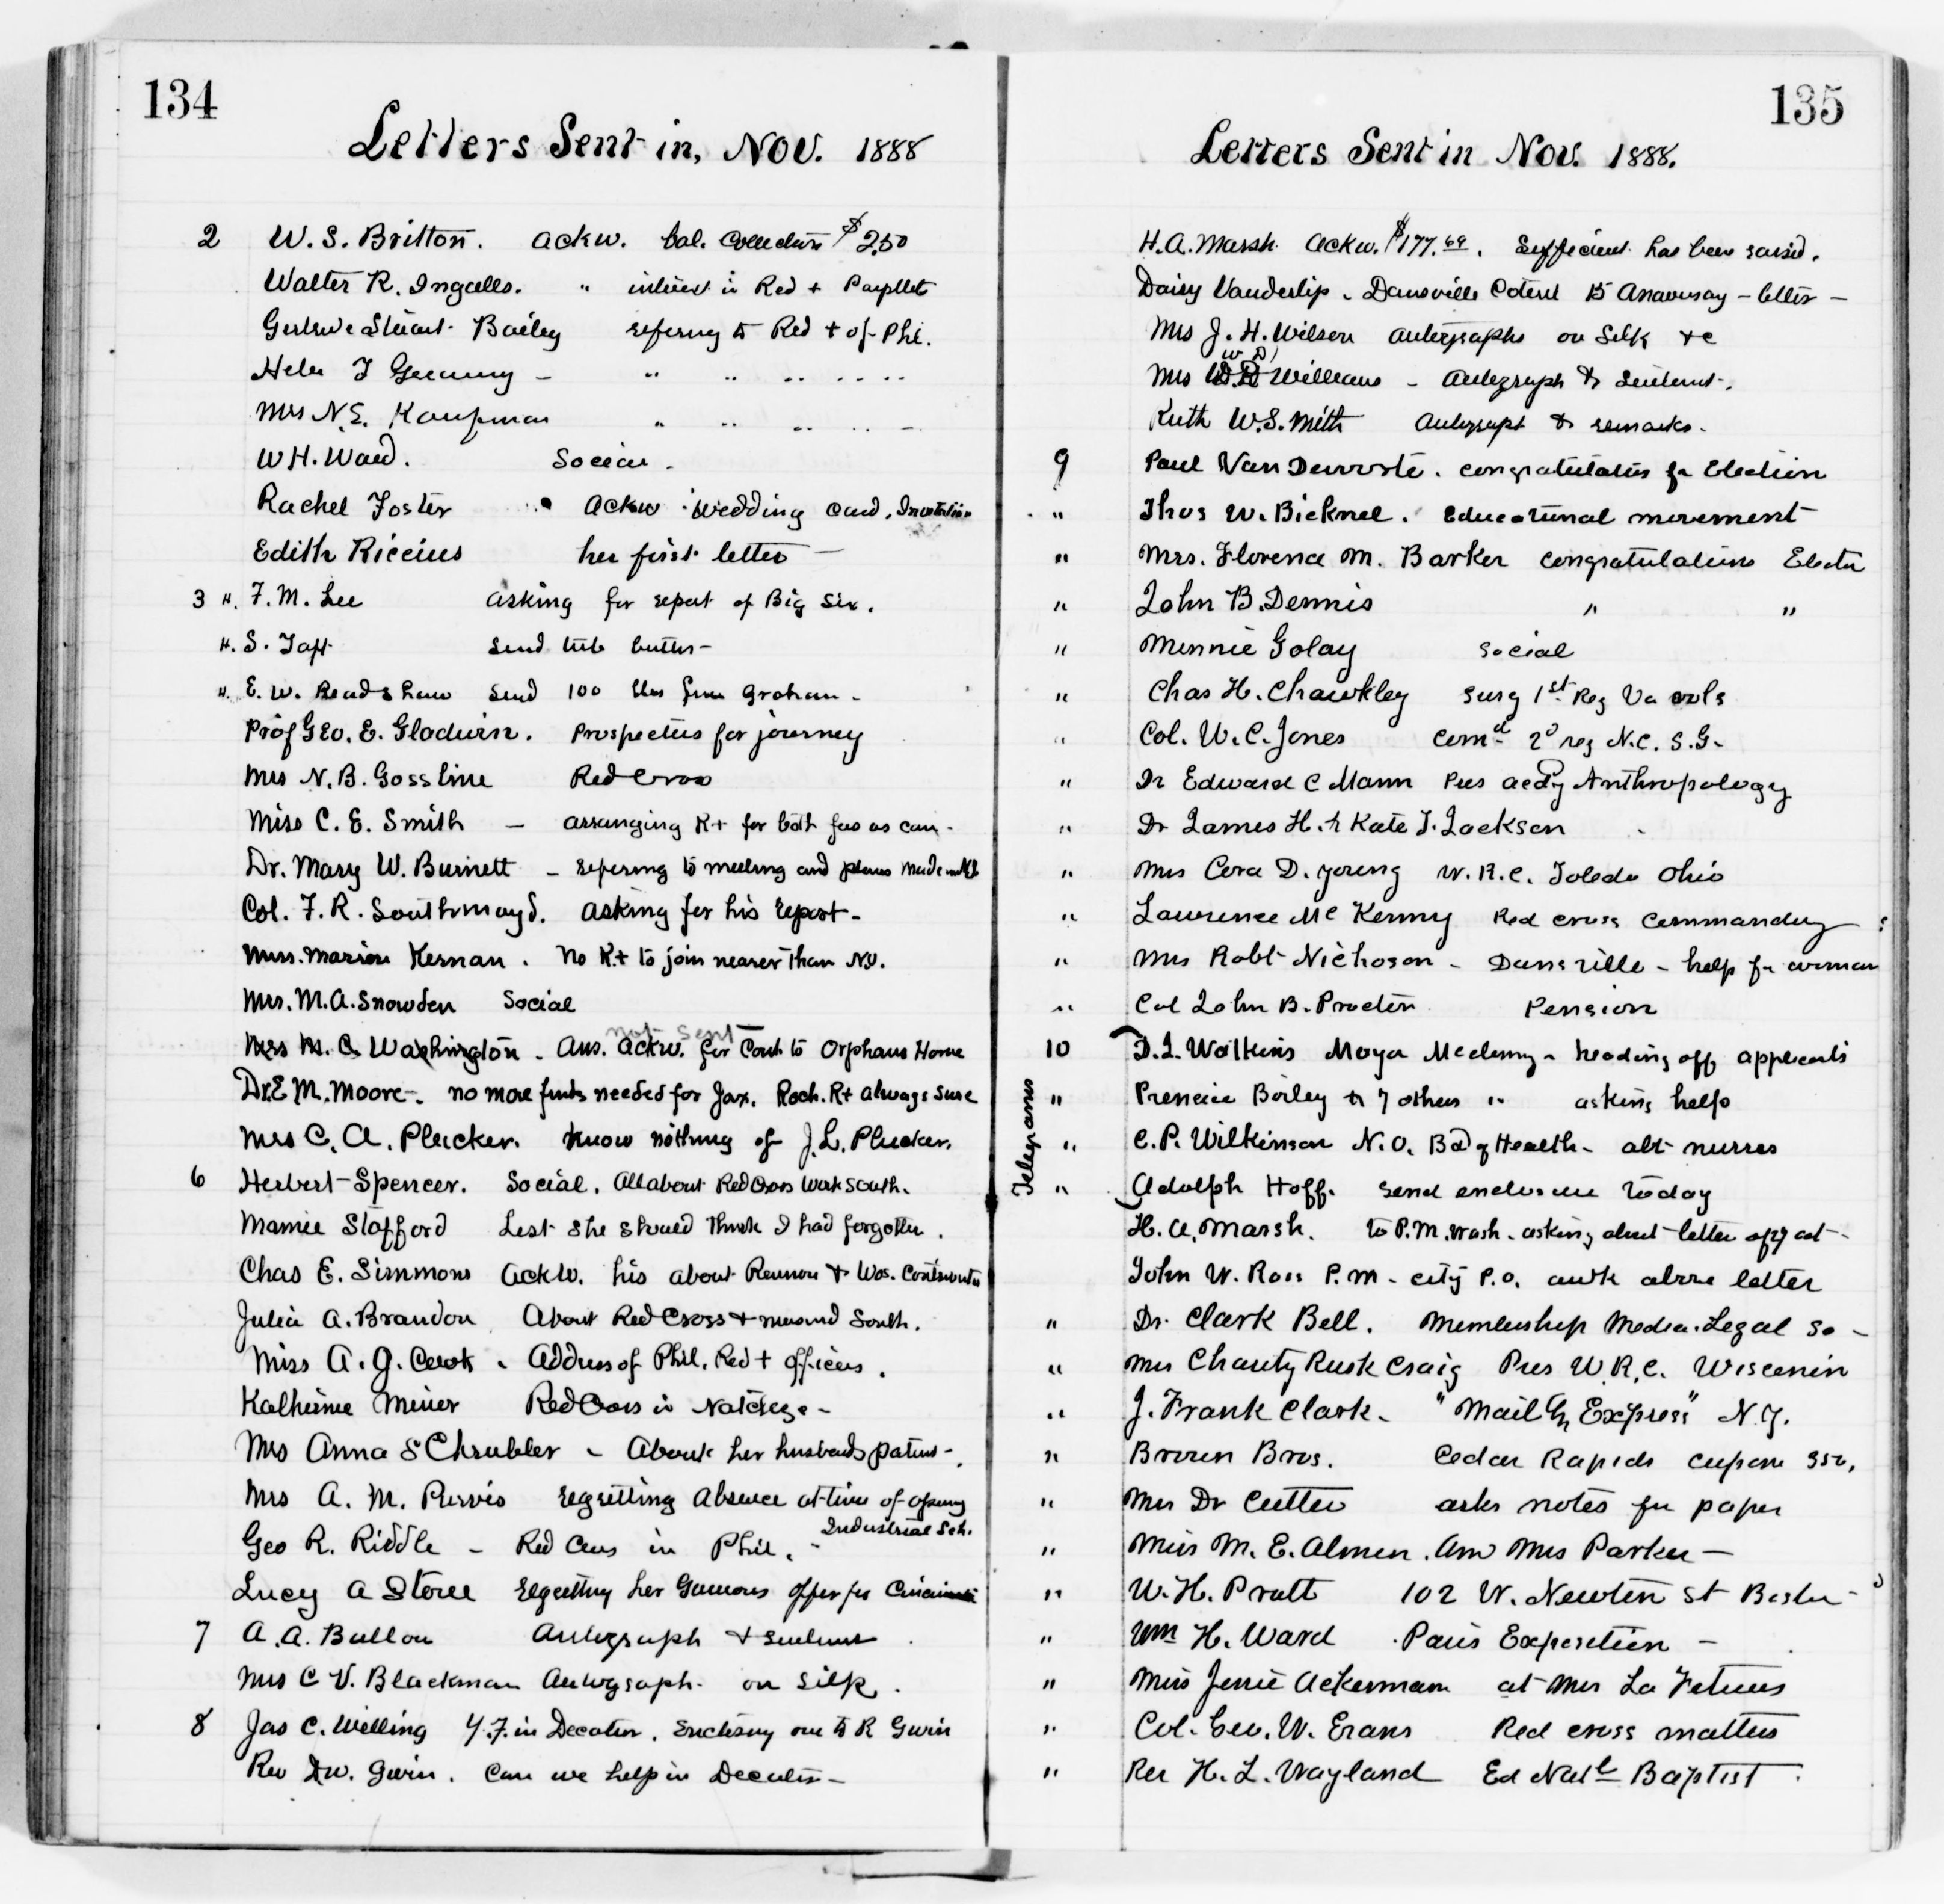 134
Letters Sent in, Nov. 1888
2 W. S. Britton. ackw. bal. Collections $2.50
Walter R. Ingalls. " interest in Red + Pamphlet
Gertrude Stuart Bailey refering to Red + of Phi.
Helen J " " " " "
Mrs N. E. Kaufman " " " " "
W H. Ward. Social.
Rachel Foster ackw Wedding Card. Invitation
Edith Riccius her first letter —
3 ". F. M. Lee asking for report of Big Six.
". S. Taft send tub butter —
". E. W. Read & how send 100 lbs fine Graham.
Prof Geo. E. Gladwin. Prospectus for journey
Mrs N. B. Gossline Red Cross
Miss C. E. Smith — arranging R+ for both
Dr. Mary W. Burnett — refering to meeting and plans made
Col. F. R. Southmayd. asking for his report —
Miss. Marion Kernan. No R+ to join nearer than N.Y.
Mrs. M. A. Snowden Social
not sent
Mrs M. C. Washington. Ans. ackw. for Cont to Orphans Home
Dr. E. M. Moore —. no more funds needed for Jax. Roch. R+ always sure
Mrs C. A. Plucker. Know nothing of J. L. Plucker.
6 Herbert Spencer. Social. All about Red Cross work South.
Mamie Stafford Lest she should think I had forgotten.
Chas E. Simmons ackw. his about Reunion + Wos.
Julia A. Brandon About Red Cross + South.
Miss A. G. Cook. Address of Phil. Red + officers.
Katherine Miner Red Cross in Natchez. —
Mrs Anna S Chrubler — About her husbands patent —.
Mrs A. M. Purvis regretting absence at time of opening
Industrial Sch.
Geo R. Riddle — Red Cross in Phil. —
Lucy A Stone regretting her generous offer for Cincinnati
7 A. A. Ballou Autograph + sentiment
Mrs C V. Blackman Autograph on silk.
8 Jas C. Welling Y.F. in Decatur. Enclosing one to R Gwin
Rev D. W. Gwin. Can we help in Decatur —
135
Letters Sent in Nov. 1888.
H. A. Marsh ackw. $177.69. Sufficient has been raised.
Daisy Vanderlip. Dansville 15 Anniversary — letter —
Mrs J. H. Wilson autographs on Silk &c
W D
Mrs Williams — Autograph & Sentiment.
Ruth W. Smith Autograph & remarks.
9 Paul Van Dervoorte. congratulations for Election
" Thos W. Bicknel. Educational movement
" Mrs. Florence M. Barker congratulations Election
" John B. Dennis " "
" Minnie Golay Social
" Chas H. Chawkley Surg 1st Reg Va vols
" Col. W. C. Jones Comd 2d reg N.C. S.G.
" Dr Edward C Mann Pres acdy Anthropology
" Dr James H. & Kate J. Jackson
" Mrs Cora D. Young W. R. C. Toledo Ohio
" Lawrence McKenny Red cross Commandery
" Mrs Robt Nichoson — Dansville — help for woman
" Col John B. Procter Pension
Telegrams
10 D. L. Watkins Mayor heading off applicants
" Bailey & 7 others " asking help
" C. P. Wilkinson N. O. Bd of Health — abt nurses
" Adolph Hoff. send enclosure today
H. A. Marsh. to P. M. Wash. asking about letter of 29 oct —
John W. Ross P.M. — city P.O. above letter
" Dr. Clark Bell. Membership Medico. Legal So —
" Mrs Charity Rusk Craig Pres W. R. C. Wisconsin
" J. Frank Clark — "Mail & Express" N.Y.
" Brown Bros. Cedar Rapids
" Mrs Dr Cutter asks notes for paper
" Miss M. E. Almen. Mrs Parker —
" W. H. Pratt 102 W. Newton St Boston —
" Wm H. Ward Paris Exposition —
" Miss Jennie Ackermann at Mrs La Fetuers
" Col. Geo. W. Evans Red cross matters
" Rev H. L. Wayland Ed Natl Baptist